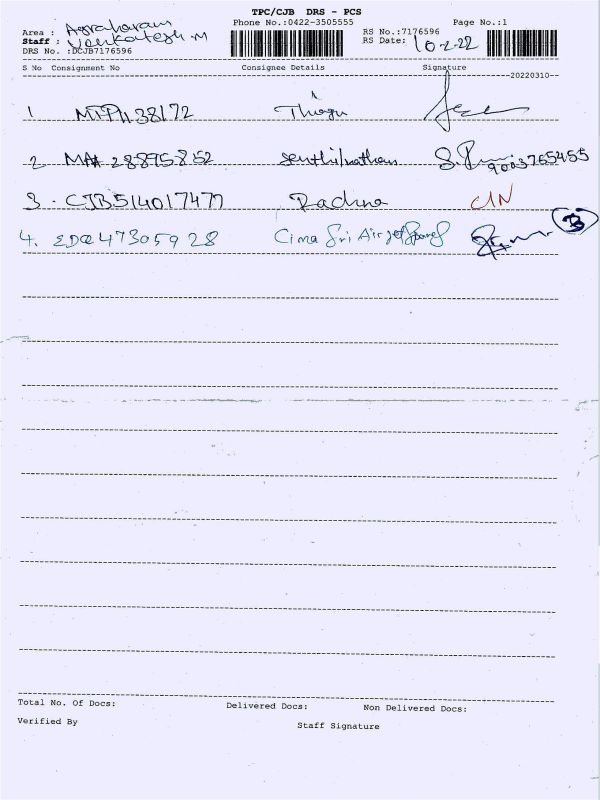 TPC/CJB DRS - PCS
Phone No.:0422-3505555
Page No.:1
Area : Agraharam
Staff : Venkatesh.M
DRS No. :DCJB7176596
RS No.:7176596
RS Date: 10-2-22
S No Consignment No Consignee Details Signature
20220310
1 38172 Thiagu
2 288958 senthilnathan 9003765455
3. CJB514017477 Radhna
4. 473059 28 Cima Sri Air jet
B
Total No. Of Docs: Delivered Docs: Non Delivered Docs:
Verified By Staff Signature